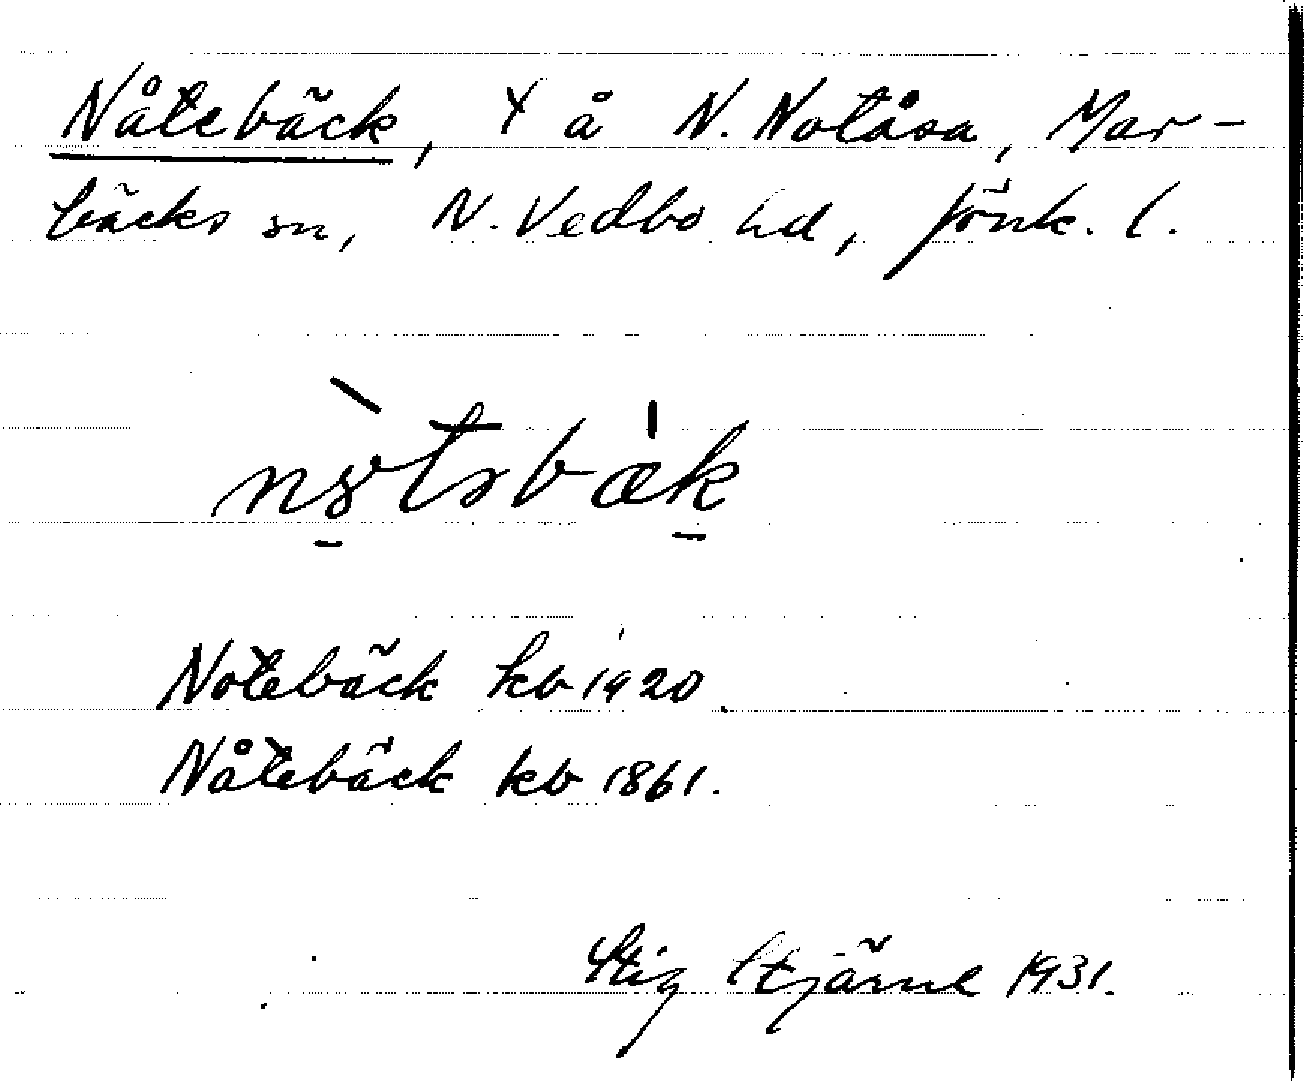 Nåtebäck, † å N. Notåsa, Mar-
bäcks sn, N. Vedbo hd, Jönk. l.
nòtəbæ̀k
Notebäck kb 1920.
Nåtebäck kb 1861.
Stig Stjärne 1931.